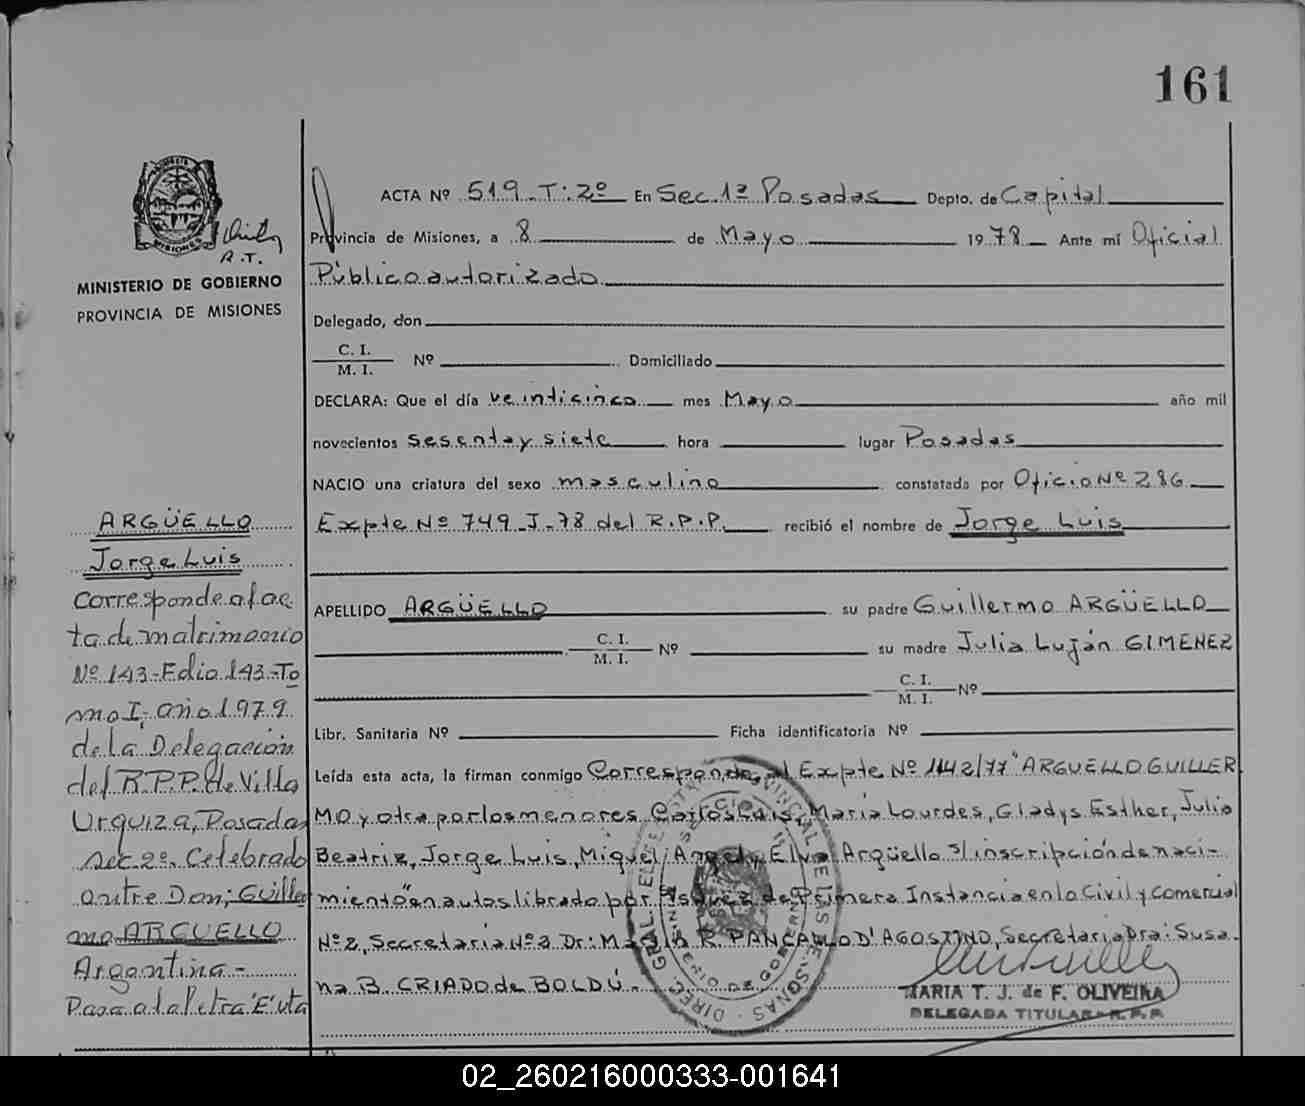 161
ACTA Nº 519 - T: 2º En Sec. 1ª Posadas Depto. de Capital
Provincia de Misiones, a 8 de Mayo 1978 Ante mí Oficial
Público autorizado
Delegado, don
C. I.
M. I.
Nº Domiciliado
DECLARA: Que el día veinticinco mes Mayo año mil
novecientos sesenta y siete hora lugar Posadas
NACIO una criatura del sexo masculino constatada por Oficio Nº 286
Expte Nº 749-J-78 del R.P.P. recibió el nombre de Jorge Luis
APELLIDO ARGÜELLO su padre Guillermo ARGÜELLO
C. I.
M. I.
Nº su madre Julia Luján GIMENEZ
C. I.
M. I.
Nº
Libr. Sanitaria Nº Ficha identificatoria Nº
Leída esta acta, la firman conmigo Corresponde al Expte Nº 1142/77 "ARGUELLO GUILLER
MO y otra por los menores Carlos Luis, María Lourdes, Gladys Esther, Julia
Beatriz, Jorge Luis, Miguel Angel y Elva Argüello s/ inscripción de naci-
miento" en autos librado por Juez de Primera Instancia en lo Civil y Comercial
Nº 2, Secretaria Nº 2 Dr: R. PANCALLO D'AGOSTINO, Secretaria Dra: Susa-
na B. CRIADO de BOLDÚ.-
MARIA T. J. de F. OLIVEIRA
DELEGADA TITULAR - R.P.P.
A.T.
MINISTERIO DE GOBIERNO
PROVINCIA DE MISIONES
ARGÜELLO
Jorge Luis
Corresponde al ac
ta de matrimonio
Nº 143 - Folio 143 - To
mo I, año 1979
de la Delegación
del R.P.P. de Villa
Urquiza, Posadas
sec. 2º. Celebrado
entre Don; Guiller
mo ARGUELLO
Argentina -
Pasa a la letra "E" vta
02_260216000333-001641